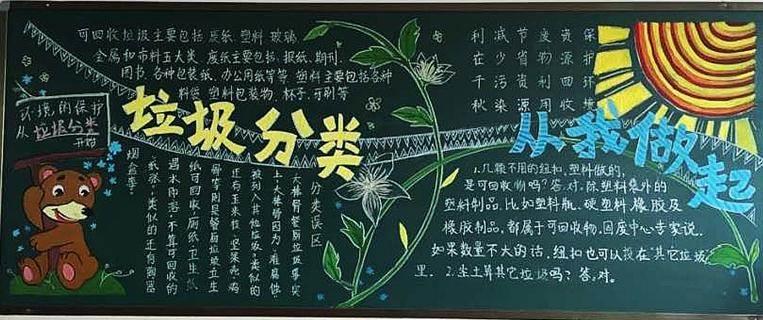 可回收垃圾主要包括 废纸、塑料、玻璃
金属和布料五大类 废纸主要包括:报纸、期刊、
图书、各种包装纸、办公用纸等等 塑料主要包括各种
料袋、塑料包装物、杯子、牙刷等
保护环境
资源四收
废物利用
节省资源
减少污染
利在千秋
环境的保护
从垃圾分类
开始
垃圾分类
从我做起
分类误区
大棒骨餐厨垃圾事实
上,大棒骨因为"难腐蚀"
被列入"其他垃圾"类似的
还有玉米核、坚果壳、鸡
骨等则是餐厨垃圾卫生
纸可回收,厕纸、卫生纸
遇水即溶,不算可回收的
"纸张",类似的还有陶器
烟盒等。
1.几颗不用的纽扣,塑料做的,
是可回收物吗?答:对。除塑料袋外的
塑料制品,比如塑料瓶、硬塑料、橡胶及
橡胶制品,都属于可回收物。
如果数量不大的话,纽扣也可以投在"其它垃圾"
里。2.尘土算其它垃圾吗?答:对。